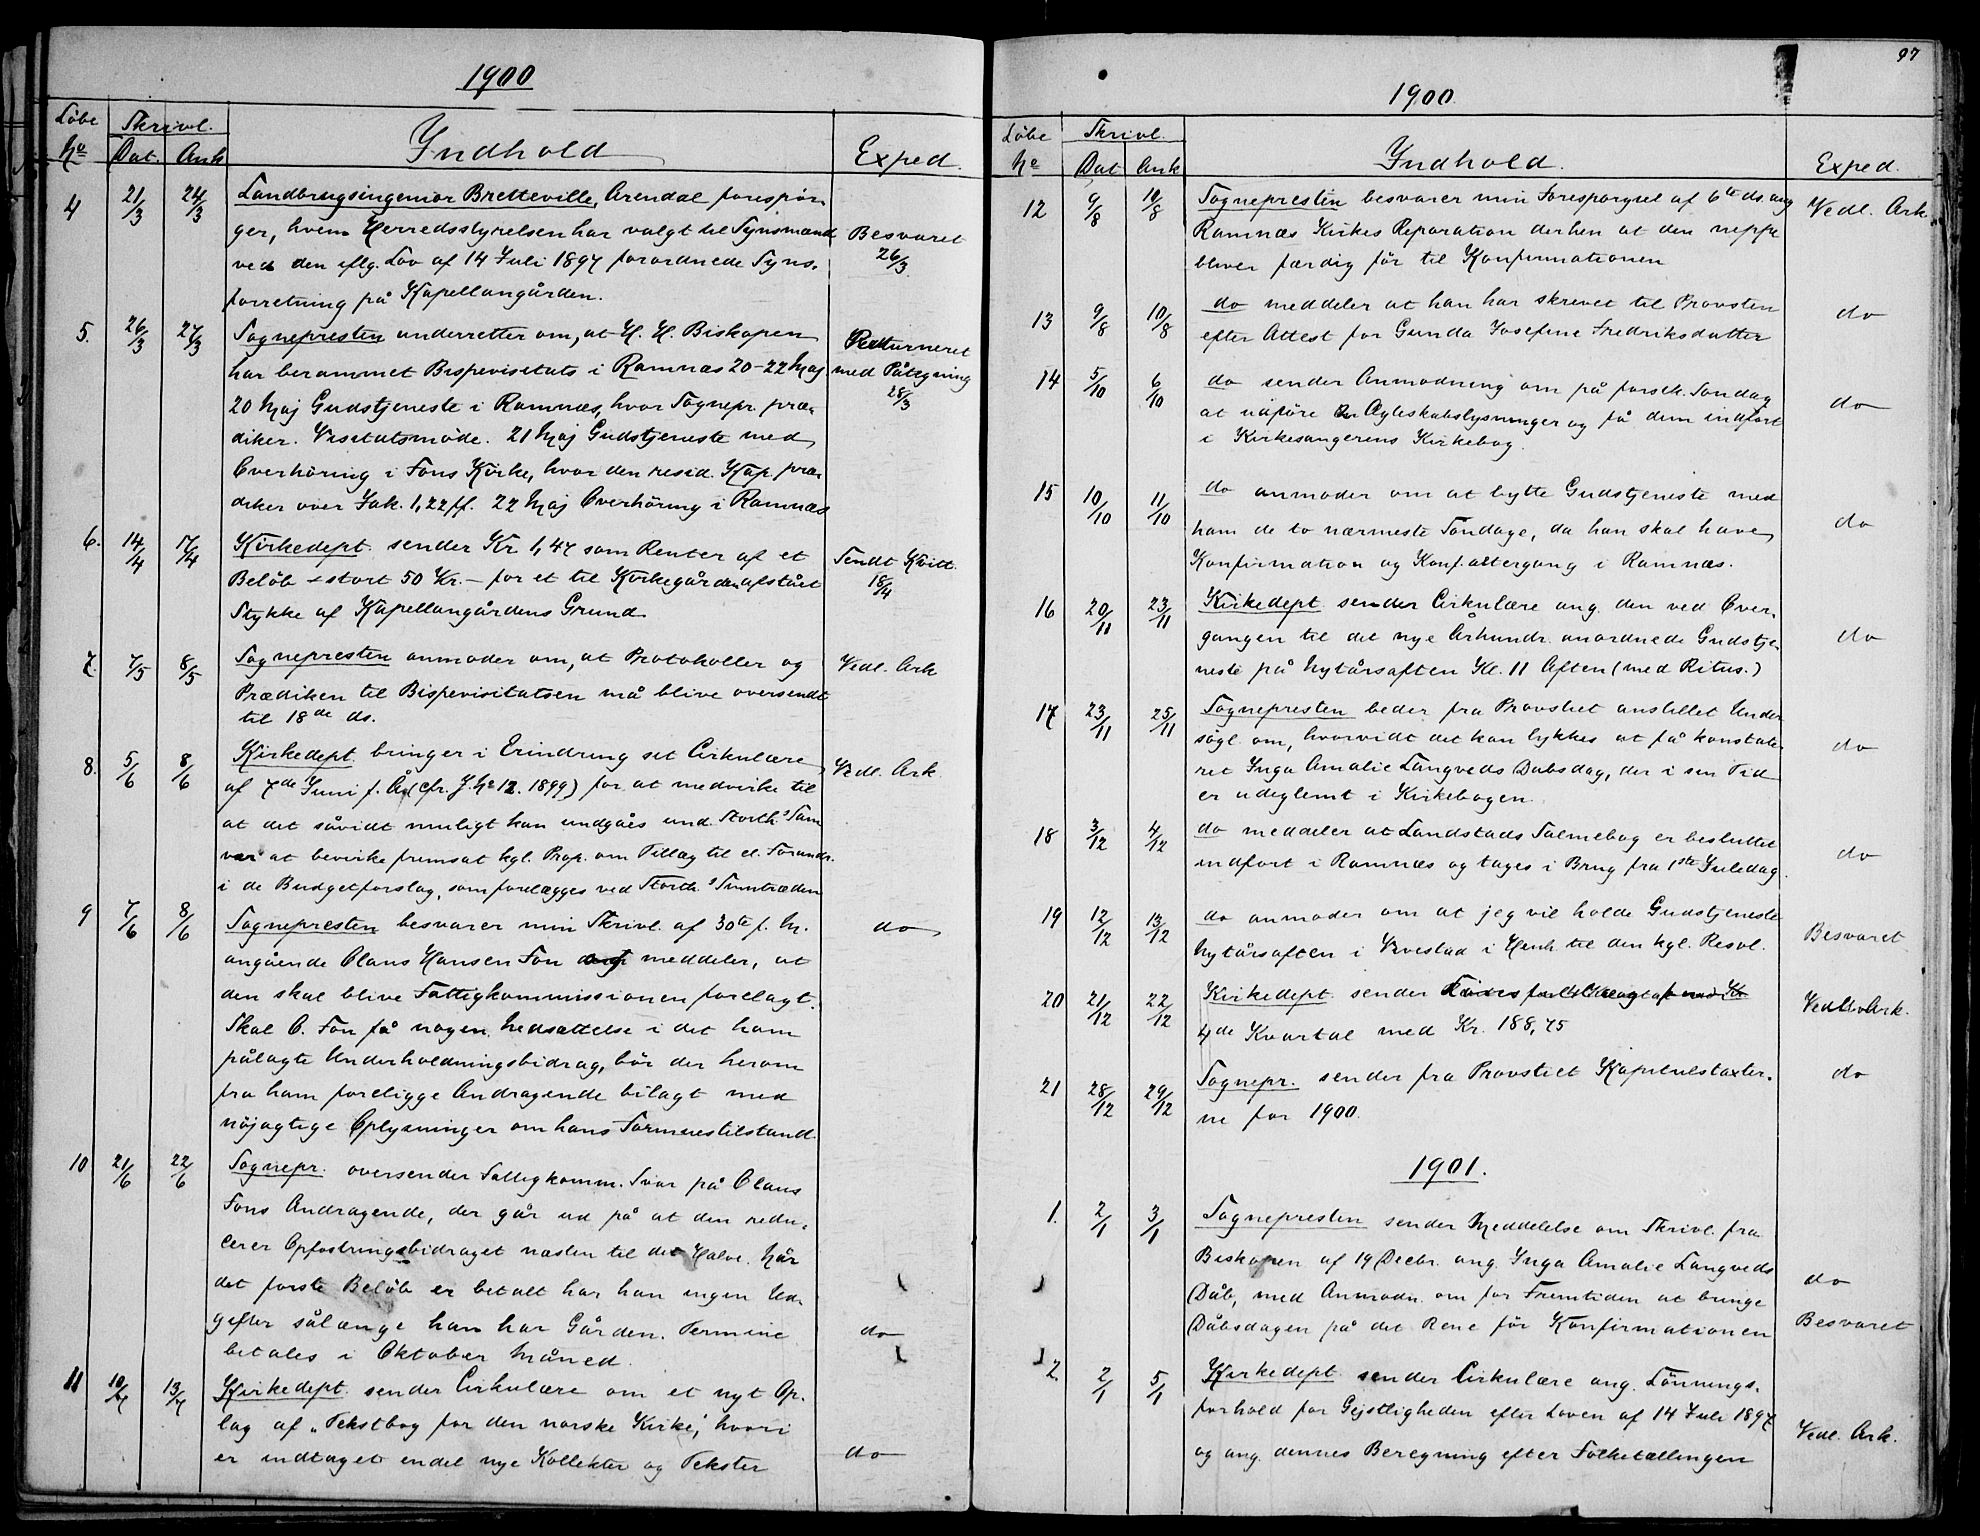 1900
Löbe Skrivl.
No Dat. Ank Indhold Exped.
4 21/3 24/3 Landbrugsingeniör Bretteville, Arendal forespör-
ger, hvem Herredsstyrelsen har valgt til Synsmænd Besvaret
ved den iflg. Lov af 14 Juli 1897 forordnede Syns- 26/3
forretning på Kapellangården.
5. 26/3 27/3 Sognepresten underretter om, at H. H. Biskopen Returneret
har berammet Bispevisitats i Ramnæs 20-22 Maj med Påtegning
20 Maj Gudstjeneste i Ramnæs, hvor Sognepr. præ- 28/3
diker. Visitatsmöde. 21 Maj Gudstjeneste med
Overhöring i Fons Kirke, hvor den resid. Kap. præ-
diker over Jak. 1,22 ff. 22 Maj Overhöring i Ramnæs
6. 14/4 17/4 Kirkedept. sender Kr 1,47 som Renter af et Sendt Kvitt.
Belöb - stort 50 Kr. - for et til Kirkegården afstået 18/4
Stykke af Kapellangårdens Grund.
7. 7/5 8/5 Sognepresten anmoder om, at Protokoller og Vedl. Ark
Prædiken til Bispevisitatsen må blive oversendt
til 18de ds.
8. 5/6 8/6 Kirkedept. bringer i Erindring sit Cirkulære Vedl. Ark.
af 7de Juni f. Å. (cfr. J. No 12. 1899) for at medvirke til
at det såvidt muligt kan undgåes und. Storth.s Sam
vær at bevirke fremsat kgl. Prop. om Tillæg til el. Forandr.
i de Budgetforslag, som forelægges ved Storth.s Sammtræden
9 7/6 8/6 Sognepresten besvarer min Skrivl. af 30te f. M. do
angående Olaus Hansen Fon meddeler, at
den skal blive Fattigkommissionen forelagt.
Skal O. Fon få nogen Nedsættelse i det ham
pålagte Underholdningsbidrag, bör der herom
fra ham foreligge Andragende bilagt med
nöjagtige Oplysninger om hans Formuestilstand.
10 21/6 22/6 Sognepr. oversender Fattigkomm. Svar på Olaus
Fons Andragende, der går ud på at den redu-
cerer Opfostringsbidraget næsten til det Halve. Når
det förste Belöb er betalt har han ingen Ud-
gifter sålænge han har Gården. Termine do
betales i Oktober Måned.
11 10/7 13/7 Kirkedept. sender Cirkulære om et nyt Op-
lag af "Tekstbog for den norske Kirke", hvori
er indtaget endel nye Kollekter og Tekster do
97
1900
Löbe Skrivl.
No Dat Ank Indhold. Exped.
12 9/8 10/8 Sognepresten besvarer min Forespörgsel af 6te ds. ang Vedl. Ark
Ramnæs Kirkes Reparation derhen at den neppe
bliver færdig för til Konfirmationen
13 9/8 10/8 do meddeler at han har skrevet til Provsten do
efter Attest for Gunda Josefine Fredriksdatter
14 5/10 6/10 do sender Anmodning om på förstk. Söndag
at udföre Ægteskabslysninger og få dem indfört do
i Kirkesangerens Kirkebog.
15 10/10 11/10 do anmoder om at bytte Gudstjeneste med
ham de to nærmeste Söndage, da han skal have do
Konfirmation og Konf.altergang i Ramnæs.
16 20/11 23/11 Kirkedept. sender Cirkulære ang. den ved Over-
gangen til det nye Århundr. anordnede Gudstje- do
neste på Nytårsaften Kl. 11 Aften (med Ritus.)
17 23/11 25/11 Sognepresten beder fra Provstiet anstillet Under
sögl. om, hvorvidt det kan lykkes at få konstate- do
ret Inga Amalie Langveds Dåbsdag, der i sin Tid
er udeglemt i Kirkebogen.
18 3/12 4/12 do meddeler at Landstads Salmebog er besluttet
indfört i Ramnæs og tages i Brug fra 1ste Juledag. do
19 12/12 13/12 do anmoder om at jeg vil holde Gudstjeneste
Nytårsaften i Vivestad i Henh. til den kgl. Resol. Besvaret
20 21/12 22/12 Kirkedept. sender Vedl. Ark.
4de Kvartal med Kr. 188,75
21 28/12 29/12 Sognepr. sender fra Provstiet Kapitelstakster- do
ne for 1900.
1901.
1. 2/1 3/1 Sognepresten sender Meddelelse om Skrivl. fra
Biskopen af 19 Decbr. ang. Inga Amalie Langveds do
Dåb, med Anmodn. om for Fremtiden at bringe
Dåbsdagen på det Rene för Konfirmationen Besvaret
2. 2/1 5/1 Kirkedept. sender Cirkulære ang. Lönnings-
forhold for Gejstligheden efter Loven af 14 Juli 1897
og ang. dennes Beregning efter Folketællingen Vedl. Ark.